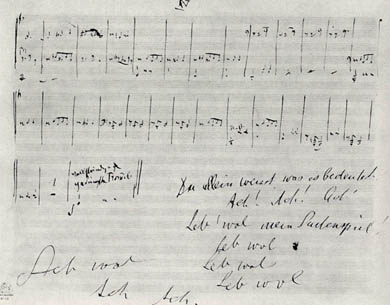 vollständig
gedämpfte Trommel
Du allein weisst was es bedeutet.
Ach! Ach! Ach!
Leb' wol mein Saitenspiel!
Leb wol
Leb wol
Leb wol
Leb wol
Ach Ach